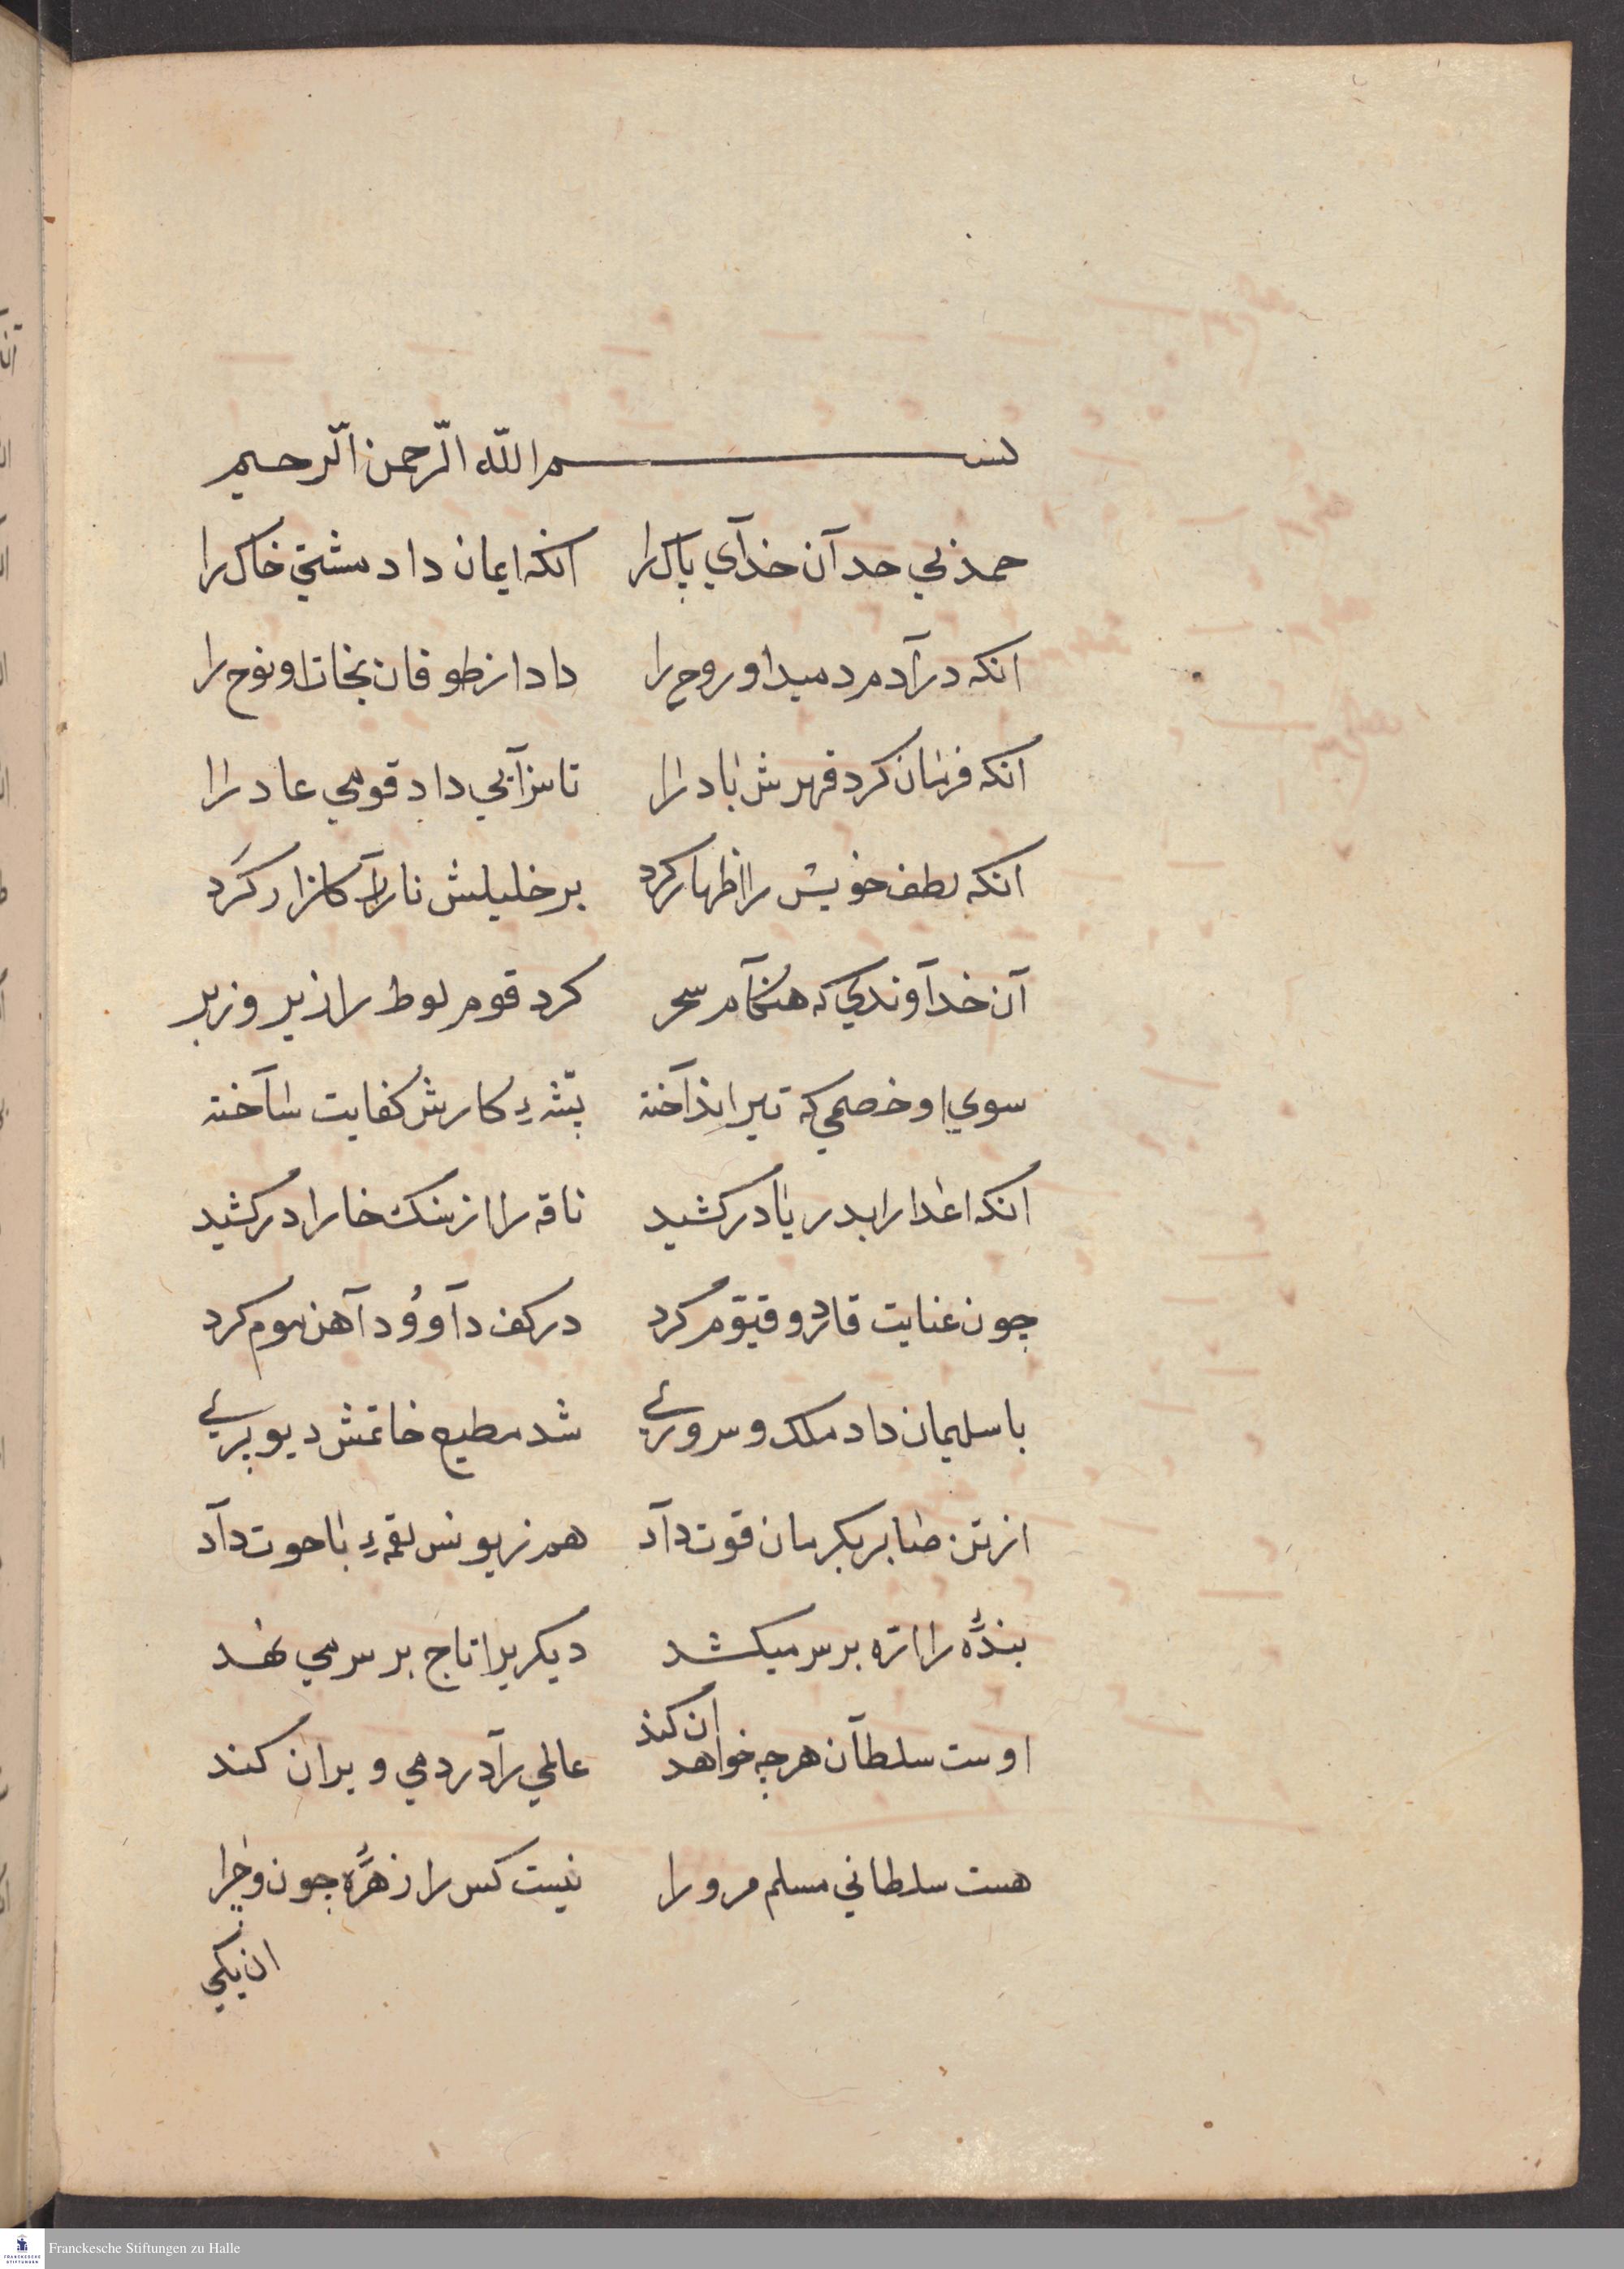 بسم الله الرّحمن الرّحيم
حمد بي حد آن خدآي پاك را انكه ايمان داد مشتي خاك را
انكه در آدم دميد او روح را داد از طوفان نجات او نوح را
انكه فرمان كرد قهرش باد را تا سزآيي داد قومي عاد را
انكه لطف خويش را اظهار كرد بر خليلش نار را كلزار كرد
آن خدآوندي كه هنكآم سحر كرد قوم لوط را زير و زبر
سوي او خصمي كه تير انداخته پشّهٔ كارش كفايت ساخته
انكه اعدا را بدريا در كشيد ناقه را از سنك خارا در كشيد
چون عنايت قادر و قيوم كرد در كف دآوُود آهن موم كرد
با سليمان داد ملك و سروري شد مطيع خاتمش ديو پري
از تن صابر بكرمان قوت دآد هم ز يونس لقمهٔ با حوت دآد
بندهٔ را ارّه بر سر ميكشد ديكريرا تاج بر سر مي نهد
اوست سلطآن هرچه خواهد ان كند عالمي رآ در دمي ويران كند
هست سلطاني مسلم مرو را نيست كس را زهرهٔ چون و چرا
ان يكي
Franckesche Stiftungen zu Halle